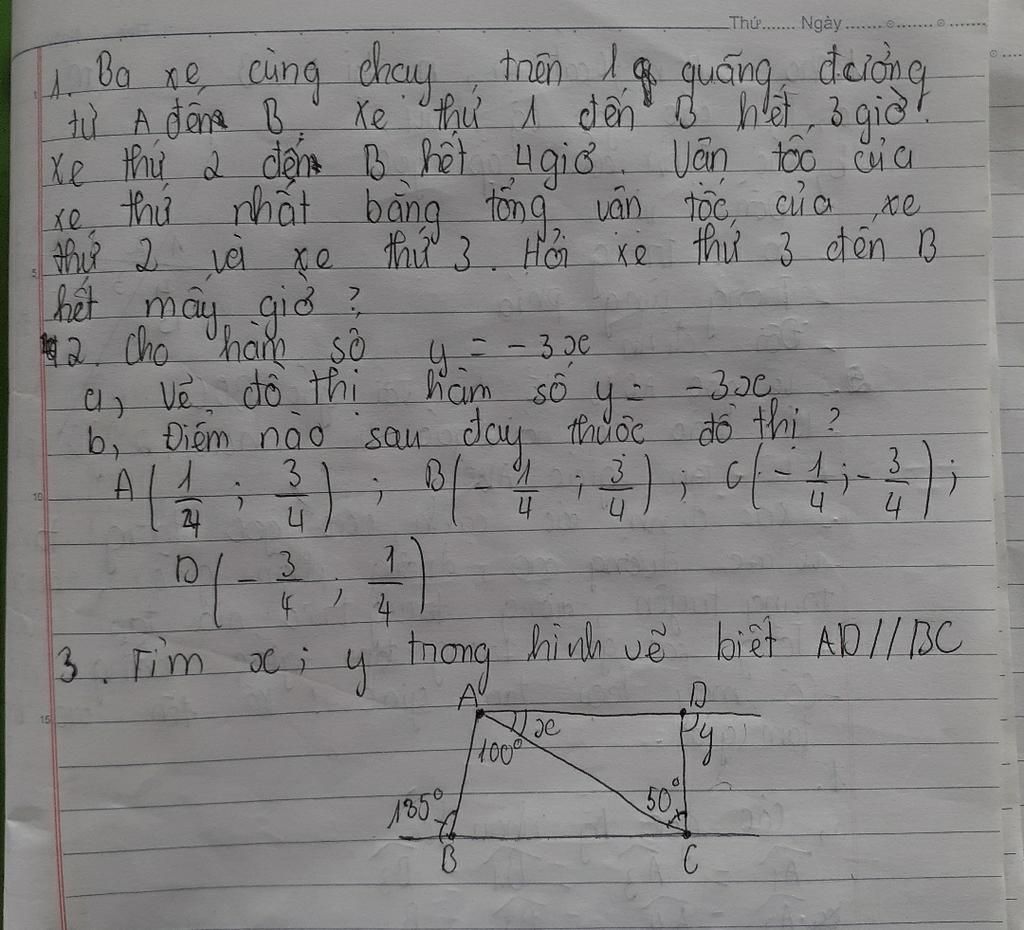 Thứ....... Ngày.....................
1. Ba xe cùng chạy trên 1 quãng đường
từ A đến B. Xe thứ 1 đến B hết 3 giờ.
xe thứ 2 đến B hết 4 giờ. Vân tốc của
xe thứ nhất bằng tổng vân tốc của xe
thứ 2 và xe thứ 3. Hỏi xe thứ 3 đến B
hết mấy giờ?
2. Cho hàm số y = -3x
a, Vẽ đồ thị hàm số y = -3x
b, Điểm nào sau đay thuộc đồ thị?
A(1/4 ; 3/4) ; B(-1/4 ; 3/4) ; C(-1/4 ; -3/4) ;
D(-3/4 ; 1/4)
3. Tìm x ; y trong hình vẽ biết AD//BC
A D
x y
100°
135° 50°
B C
5
10
15